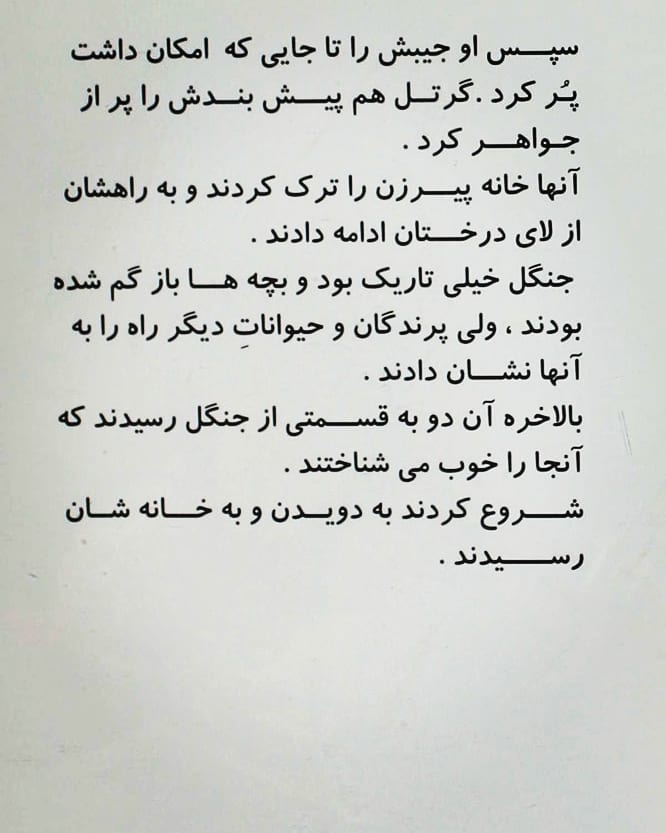 سپس او جیبش را تا جایی که امکان داشت
پُر کرد .گرتل هم پیش بندش را پر از
جواهر کرد .
آنها خانه پیرزن را ترک کردند و به راهشان
از لای درختان ادامه دادند .
جنگل خیلی تاریک بود و بچه ها باز گم شده
بودند ، ولی پرندگان و حیواناتِ دیگر راه را به
آنها نشان دادند .
بالاخره آن دو به قسمتی از جنگل رسیدند که
آنجا را خوب می شناختند .
شروع کردند به دویدن و به خانه شان
رسیدند .